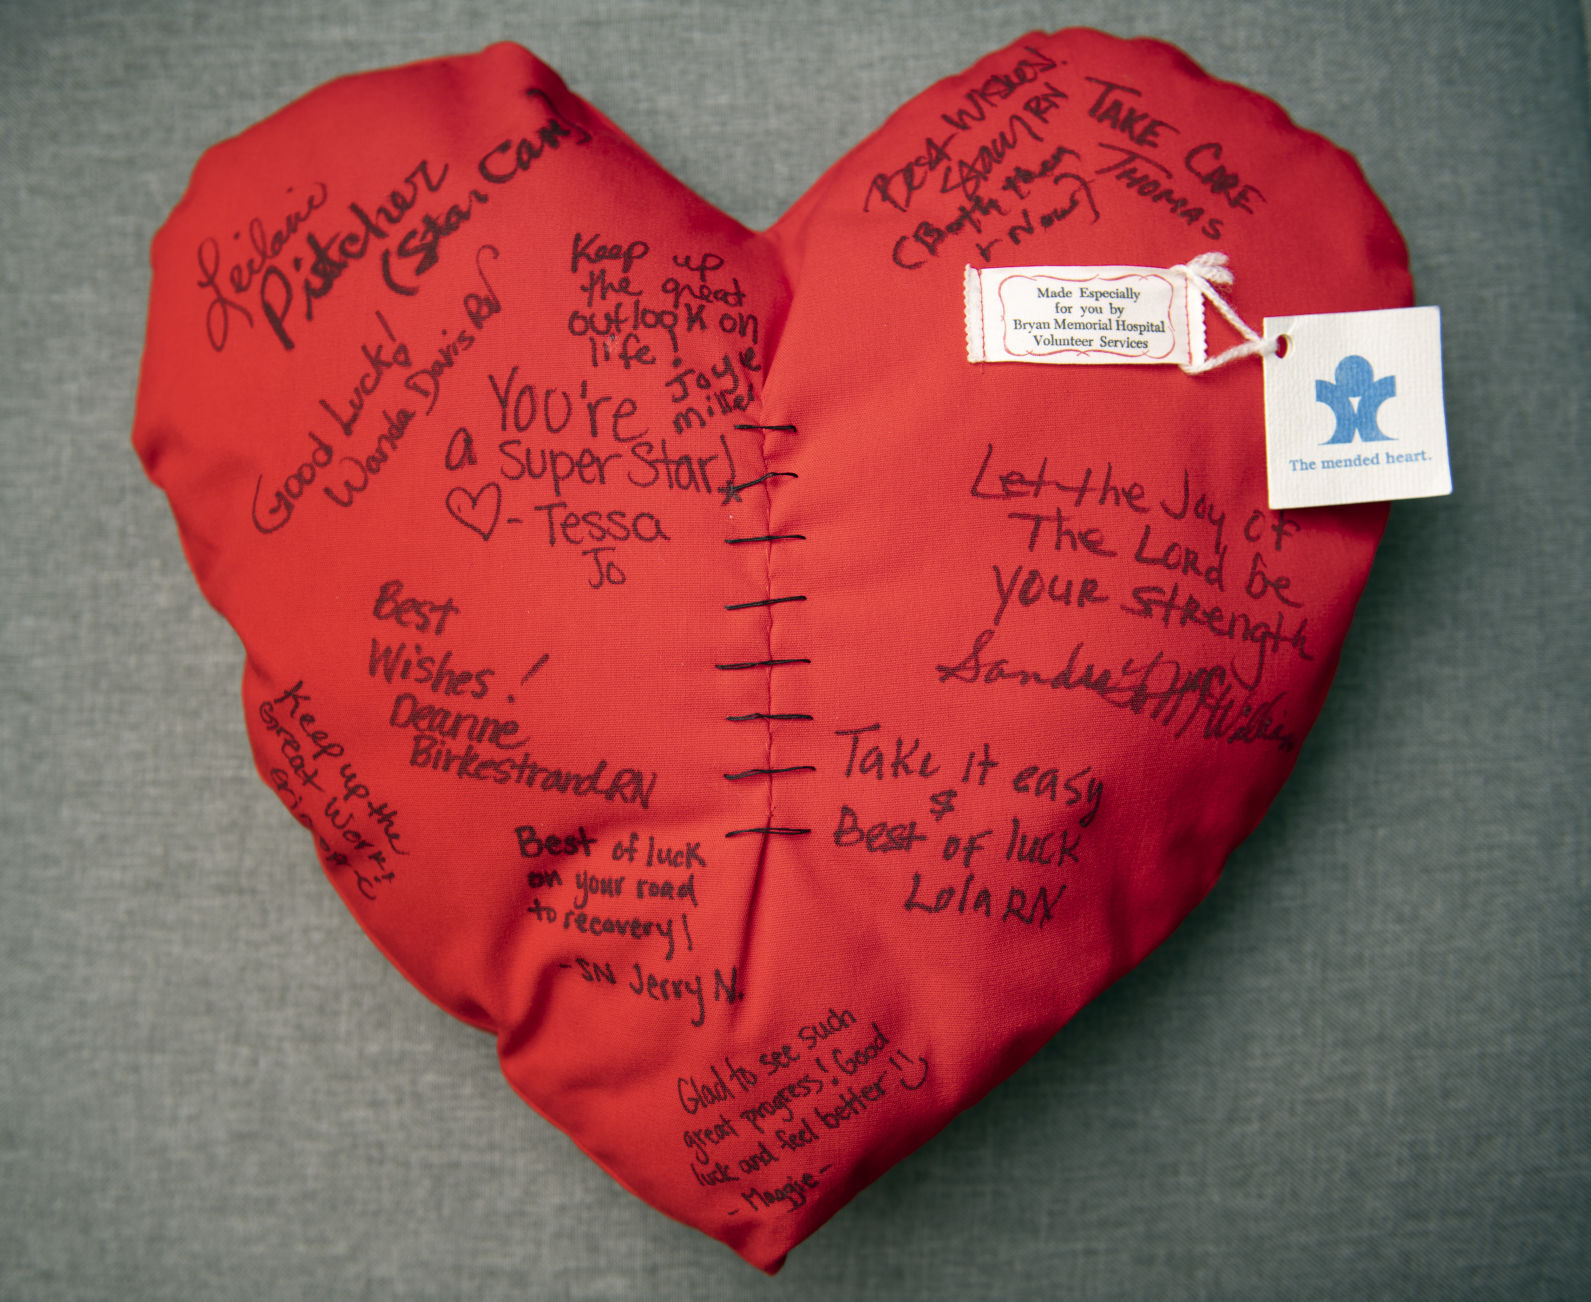 Leilani
Pitcher
(Star Care)
Good Luck!
Wanda Davis RN
Keep up
the great
outlook on
life!
Joyce
Miller
You're
a Super Star!
- Tessa
Jo
Best
Wishes!
Deanne
Birkestrand RN
Keep up the
Great Work!
Best of luck
on your road
to recovery!
- SN Jerry N.
Glad to see such
great progress! Good
luck and feel better!
- Maggie -
Best Wishes!
RN
(Both then
+ Now)
TAKE CARE
THOMAS
Made Especially
for you by
Bryan Memorial Hospital
Volunteer Services
The mended heart.
Let the Joy of
The Lord be
YOUR Strength
Sandra
Take it easy
&
Best of luck
Lola RN